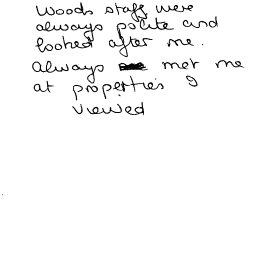 Woods staff were
always polite and
looked after me.
Always met me
at properties I
viewed